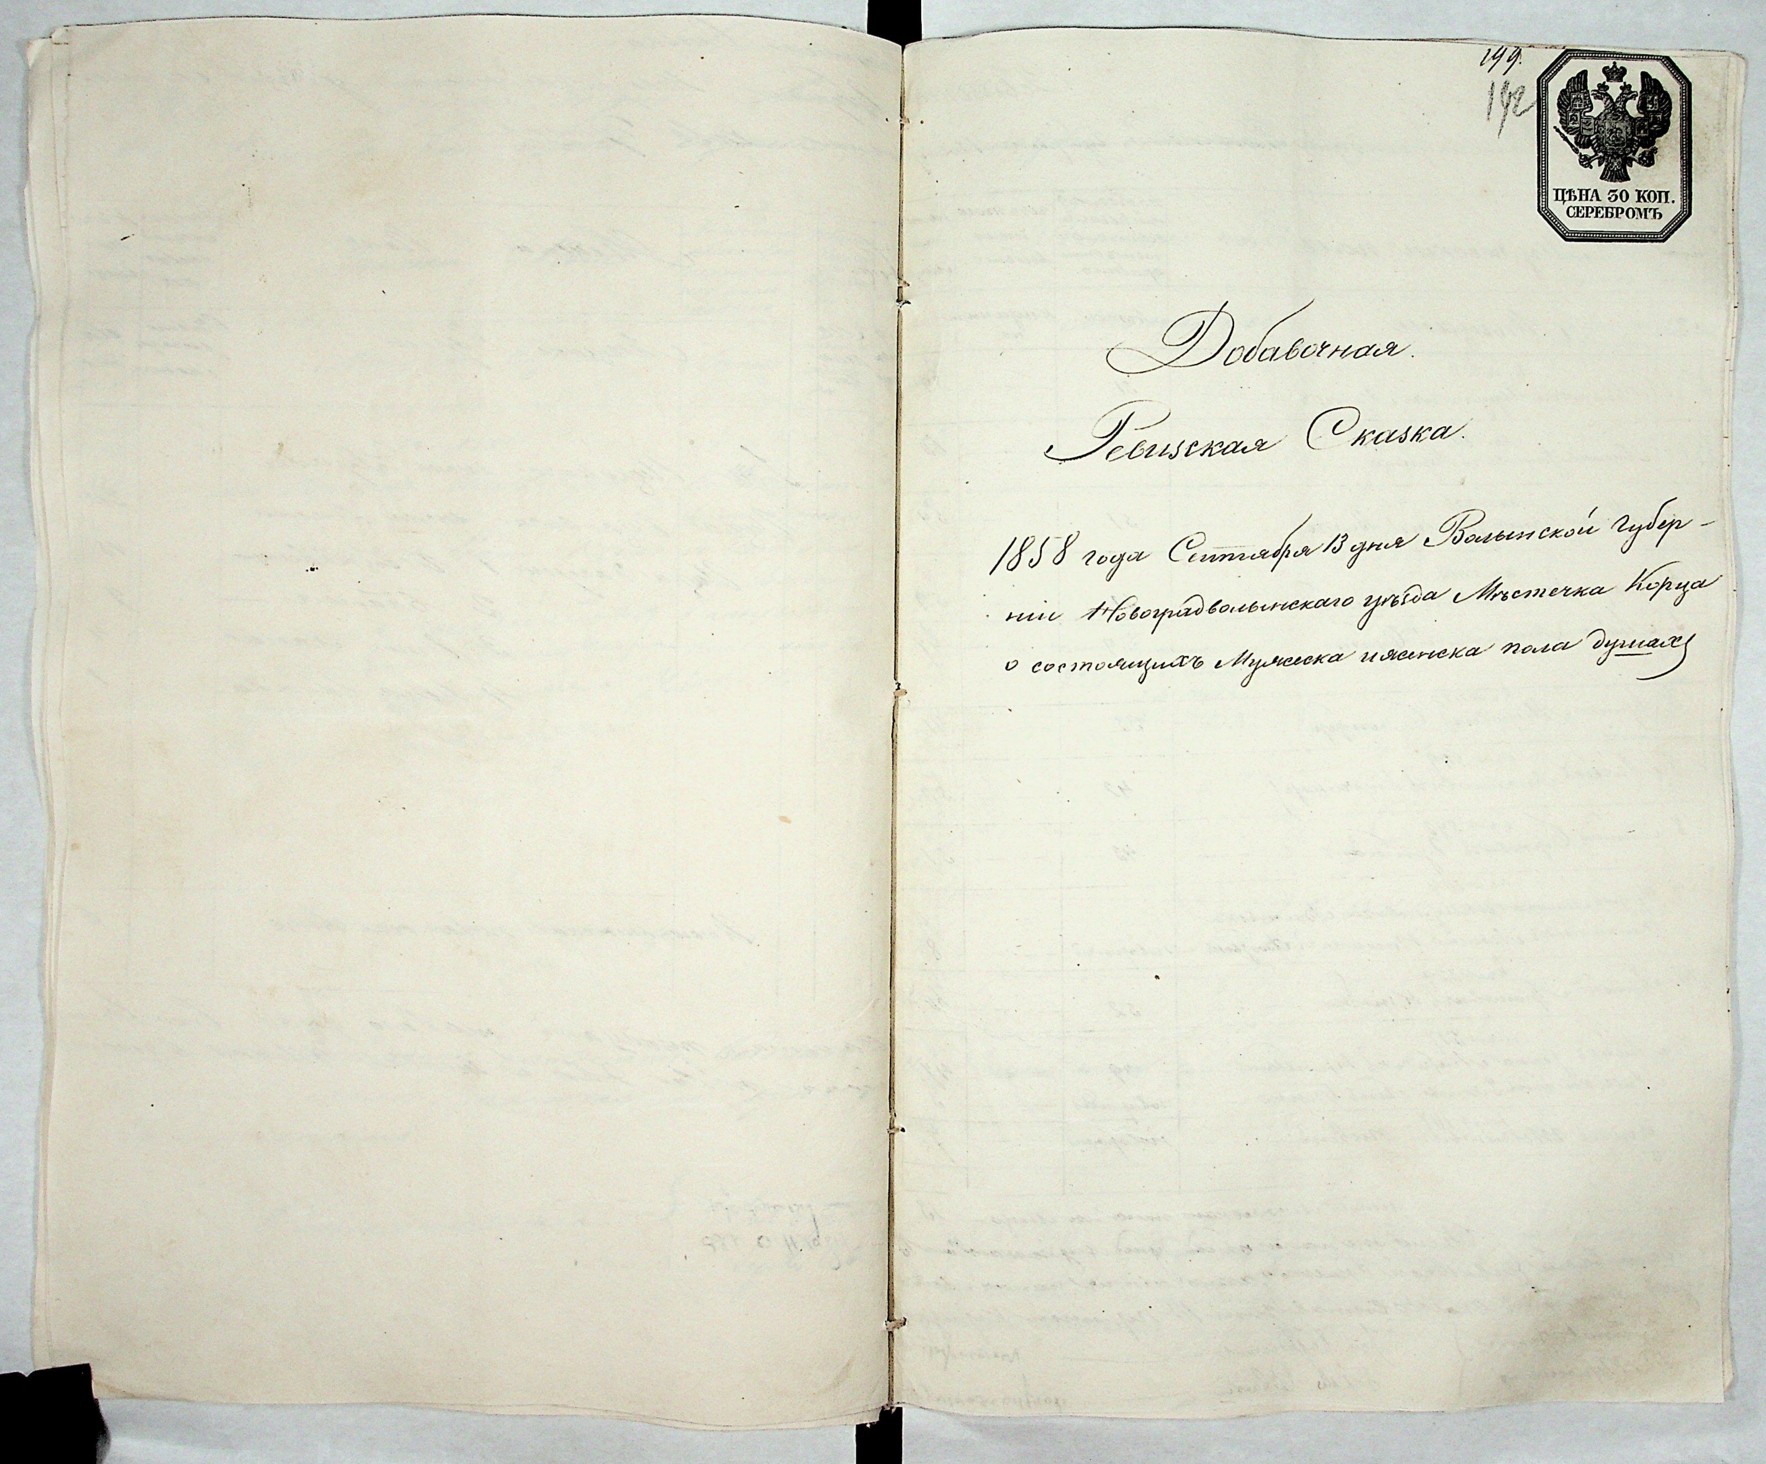 199.
192
ЦѢНА 30 КОП.
СЕРЕБРОМЪ
Добавочная.
Ревизская Сказка.
1858 года Сентября 13 дня Волынской Губер-
нии Новоградволынскаго уѣзда Мѣстечка Корца
о состоящихъ Мужеска и женска пола душахъ